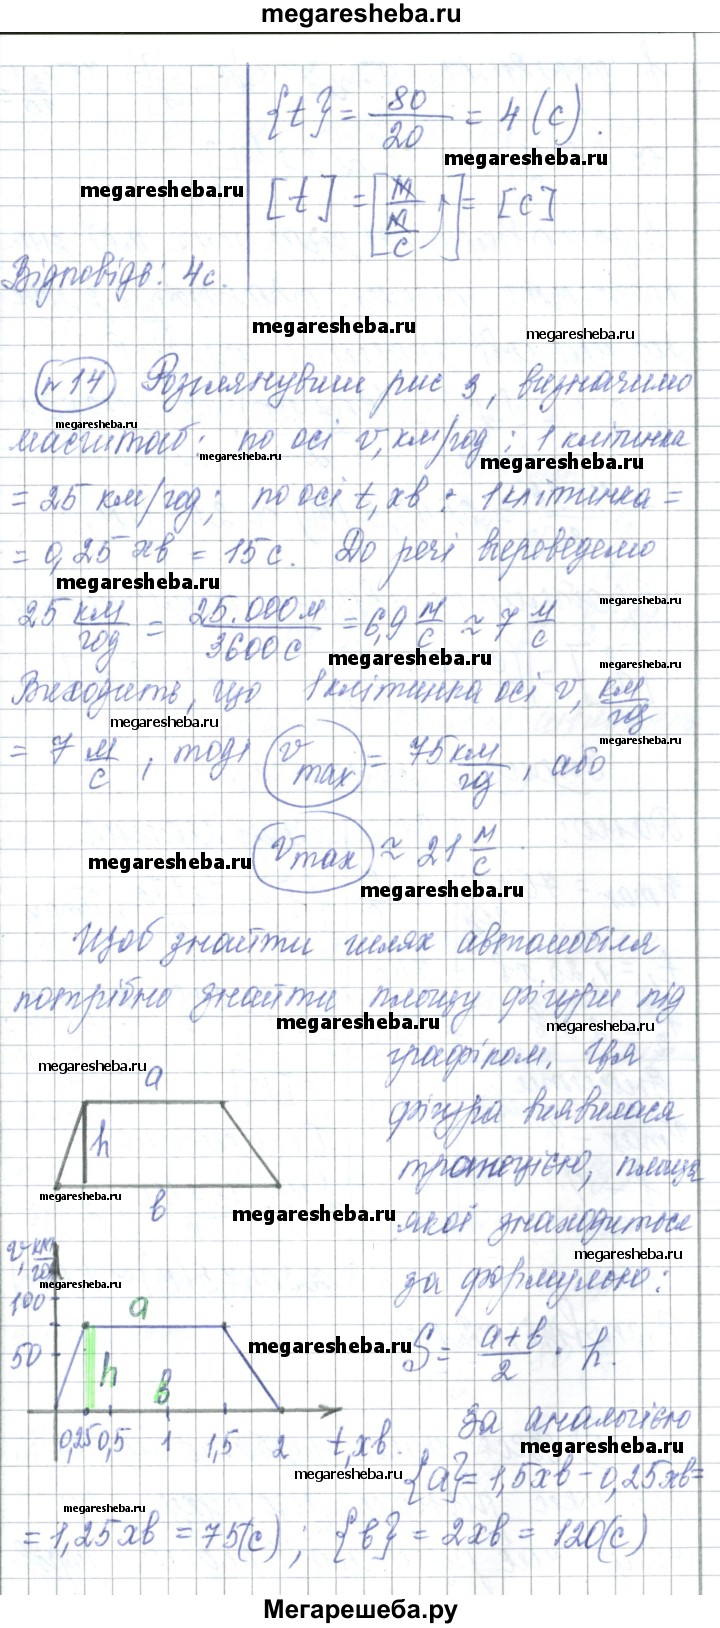 megaresheba.ru
{t} = 80/20 = 4 (с).
megaresheba.ru
megaresheba.ru
[t] = [м/(м/с)] = [с]
Відповідь: 4с.
megaresheba.ru
megaresheba.ru
№14 Розглянувши рис 3, визначимо
megaresheba.ru
масштаб: по осі v, км/год: 1 клітинка
megaresheba.ru
megaresheba.ru
= 25 км/год; по осі t, хв: 1 клітинка =
= 0,25 хв = 15с. До речі переведемо
megaresheba.ru
megaresheba.ru
25 км/год = 25.000м/3600с = 6,9 м/с ≈ 7 м/с
megaresheba.ru
megaresheba.ru
Виходить, що 1 клітинка осі v, км/год
megaresheba.ru
megaresheba.ru
= 7 м/с, тоді vmax = 75 км/год, або
vmax ≈ 21 м/с
megaresheba.ru
megaresheba.ru
Щоб знайти шлях автомобіля
потрібно знайти площу фігури під
megaresheba.ru
megaresheba.ru
графіком. Ця
megaresheba.ru
a
фігура виявилася
h
трапецією, площа
megaresheba.ru
b
megaresheba.ru
якої знаходиться
v, км/год
megaresheba.ru
за формулою:
megaresheba.ru
100
a
50
h
b
megaresheba.ru
S = (a+b)/2 · h.
0,25 0,5 1 1,5 2 t, хв.
За аналогією
megaresheba.ru
megaresheba.ru
{a} = 1,5хв − 0,25хв =
megaresheba.ru
= 1,25хв = 75(с); {b} = 2хв = 120(с)
megaresheba.ru
Мегарешеба.ру